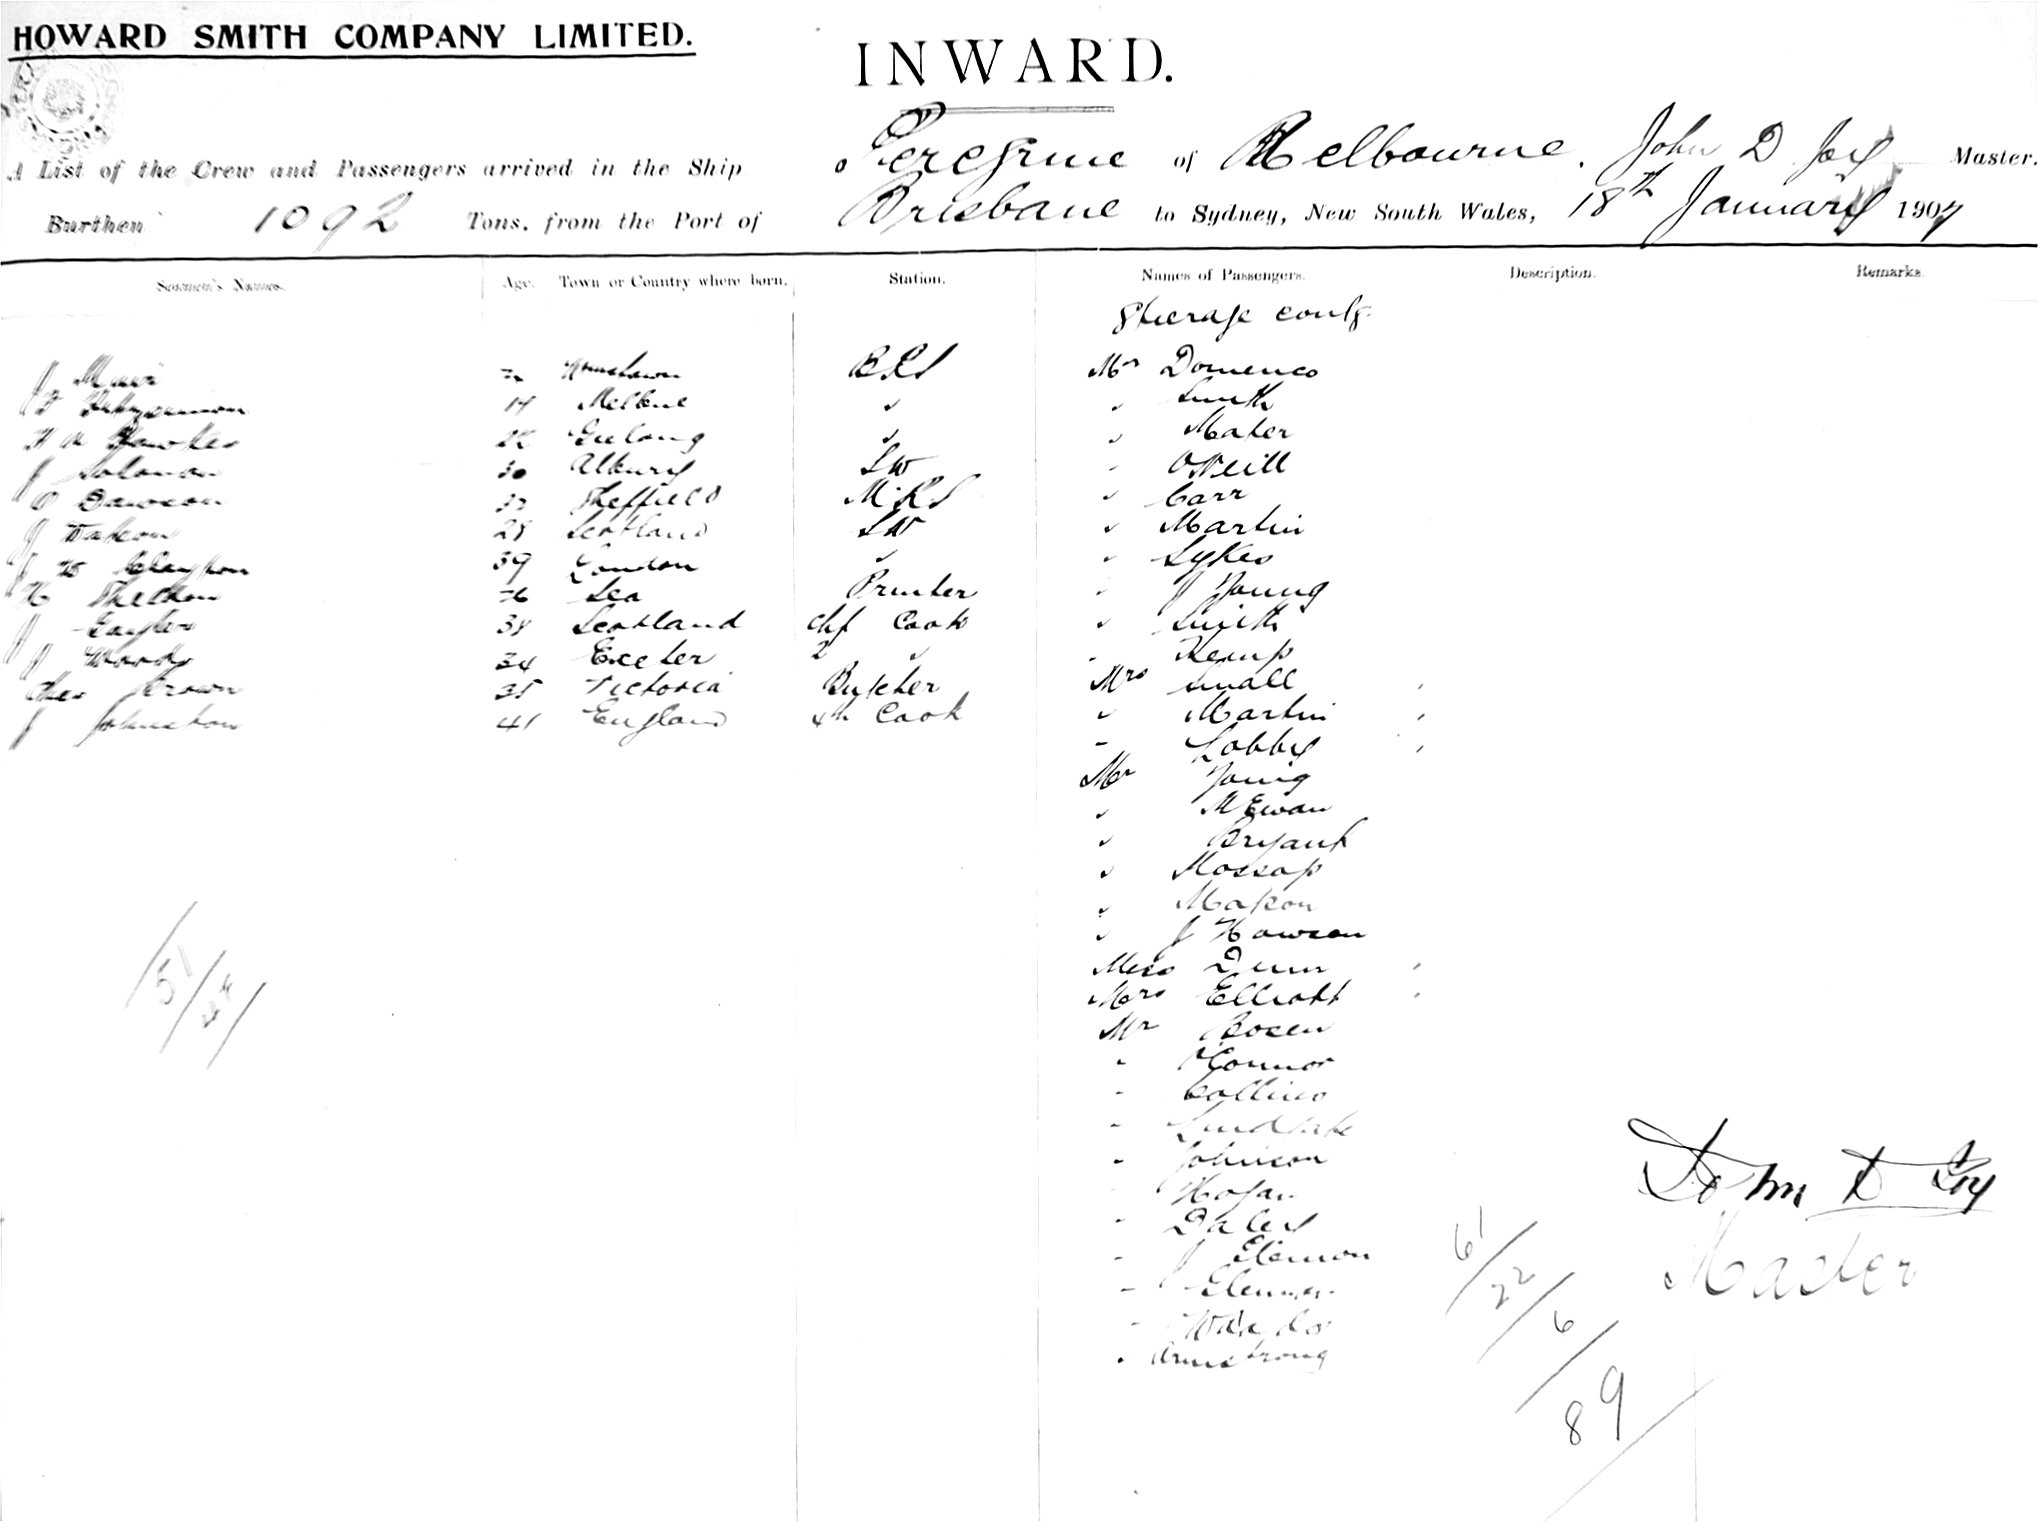 HOWARD SMITH COMPANY LIMITED.
INWARD.
A List of the Crew and Passengers arrived in the Ship Peregrine of Melbourne, John D Joy Master.
Burthen 1092 Tons, from the Port of Brisbane to Sydney, New South Wales, 18th January 1907
Seamen's Names. Age. Town or Country where born. Station. Names of Passengers. Description. Remarks.
Steerage contg.
J Muir Mr Domenco
14 Melbne " " Smith
Hawkes 22 Geelong " " Maher
J Solomon 30 Albury SW " O'Neill
Dawson Sheffield M.R.S " Carr
J Watson 28 Scotland SW " Martin
J Clayton 39 London " " Sykes
Sea Printer " J Young
J 38 Scotland chf Cook " Smith
J Woods 34 Exeter 2 " " Kemp
Chas Brown 35 Victoria Butcher Mrs Small
J Johnston 41 England 4th Cook " Martin
" Lobby
Mr Young
" McEwan
" Bryant
" Mossop
" 
" J Howson
Miss Dunn
Mrs Elliott
Mr Bosen
" O'Connor
" Collins
" Lindgate
" Johnson
" Hogan
" Daley
" J
"
"
" Armstrong
51/
John D Joy
Master
61/22/6/
89